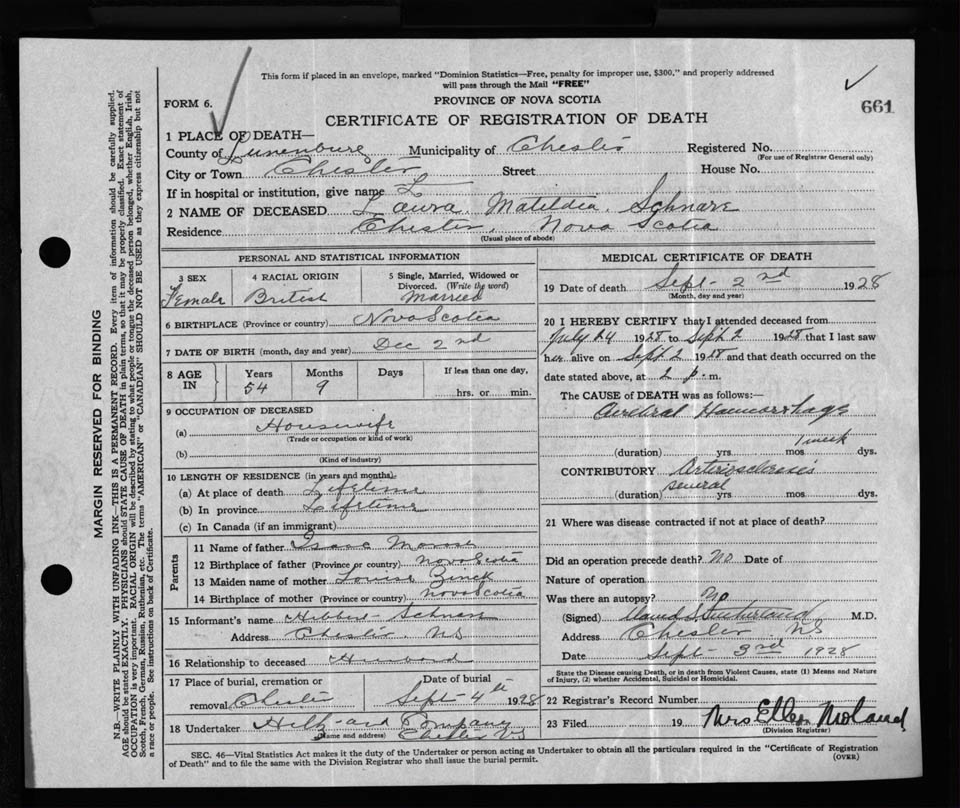 This form if placed in an envelope, marked "Dominion Statistics—Free, penalty for improper use, $300," and properly addressed
will pass through the Mail "FREE"
FORM 6.
PROVINCE OF NOVA SCOTIA
661
CERTIFICATE OF REGISTRATION OF DEATH
1 PLACE OF DEATH—
County of Lunenburg Municipality of Chester Registered No.
(For use of Registrar General only)
City or Town Chester Street House No.
If in hospital or institution, give name
2 NAME OF DECEASED Laura Matildia Schnare
Residence Chester, Nova Scotia
(Usual place of abode)
PERSONAL AND STATISTICAL INFORMATION
3 SEX Female
4 RACIAL ORIGIN British
5 Single, Married, Widowed or Divorced. (Write the word) Married
6 BIRTHPLACE (Province or country) Nova Scotia
7 DATE OF BIRTH (month, day and year) Dec 2nd
8 AGE IN Years 54 Months 9 Days If less than one day, hrs. or min.
9 OCCUPATION OF DECEASED
(a) Housewife
(Trade or occupation or kind of work)
(b)
(Kind of industry)
10 LENGTH OF RESIDENCE (in years and months)-
(a) At place of death Lifetime
(b) In province Lifetime
(c) In Canada (if an immigrant)
Parents
11 Name of father Isaac
12 Birthplace of father (Province or country) Nova Scotia
13 Maiden name of mother Louise Zinck
14 Birthplace of mother (Province or country) Nova Scotia
15 Informant's name Schnare
Address Chester, N.S
16 Relationship to deceased Husband
17 Place of burial, cremation or removal Chester Date of burial Sept- 4th 1928
18 Undertaker and Company
(Name and address) Chester N S
MEDICAL CERTIFICATE OF DEATH
19 Date of death Sept- 2nd 1928
(Month, day and year)
20 I HEREBY CERTIFY that I attended deceased from
July 24 1928 to Sept 2 1928 that I last saw
her alive on Sept 2 1928 and that death occurred on the
date stated above, at 2 p. m.
The CAUSE of DEATH was as follows:—
Cerebral Haemorrhage
1 week
(duration) yrs mos dys.
CONTRIBUTORY Arteriosclerosis
several
(duration) yrs mos dys.
21 Where was disease contracted if not at place of death?
Did an operation precede death? No Date of
Nature of operation
Was there an autopsy? No
(Signed) Sutherland M.D.
Address Chester, N S
Date Sept- 3rd 1928
State the Disease causing Death, or in death from Violent Causes, state (1) Means and Nature
of Injury, (2) whether Accidental, Suicidal or Homicidal.
22 Registrar's Record Number
23 Filed 19 Mrs Ellen
(Division Registrar)
SEC. 46—Vital Statistics Act makes it the duty of the Undertaker or person acting as Undertaker to obtain all the particulars required in the "Certificate of Registration
of Death" and to file the same with the Division Registrar who shall issue the burial permit.
(OVER)
MARGIN RESERVED FOR BINDING
N.B.—WRITE PLAINLY, WITH UNFADING INK—THIS IS A PERMANENT RECORD. Every item of information should be carefully supplied.
AGE should be stated EXACTLY. PHYSICIANS should STATE CAUSE OF DEATH in plain terms, so that it may be properly classified. Exact statement of
OCCUPATION is very important. RACIAL ORIGIN will be described by stating to what people or tongue the deceased person belonged, whether English, Irish,
Scotch, French, German, Russian, Ruthenian, etc. The terms "AMERICAN" or "CANADIAN" SHOULD NOT BE USED as they express citizenship but not
a race or people. See instructions on back of Certificate.